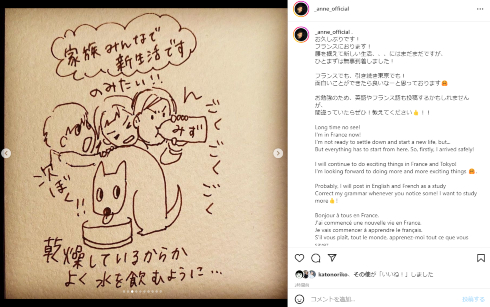 家族みんなで
新生活です
のみたい!!
みず
んごく
ごく
ごく
穴ぼこ!!
乾燥しているからか
よく水を飲むように…
_anne_official
_anne_official
お久しぶりです!
フランスにおります!
腰を据えて新しい生活、、、にはまだまだですが、
ひとまずは無事到着しました!
フランスでも、引き続き東京でも!
面白いことができたら良いなーと思っております🤗
お勉強のため、英語やフランス語も投稿するかもしれません
が、
間違っていたらぜひ!教えてください👍!!
Long time no see!
I'm in France now!
I'm not ready to settle down and start a new life, but..
But everything has to start from here. So, firstly, I arrived safely!
I will continue to do exciting things in France and Tokyo!
I'm looking forward to doing more and more exciting things 🤗.
Probably, I will post in English and French as a study
Correct my grammar whenever you notice some! I want to study
more👍!
Bonjour à tous en France.
J'ai commencé une nouvelle vie en France.
Je vais commencer à apprendre le français.
S'il vous plaît, tout le monde, apprenez-moi tout ce que vous
katonoriko、その他が「いいね!」しました
コメントを追加...
投稿する